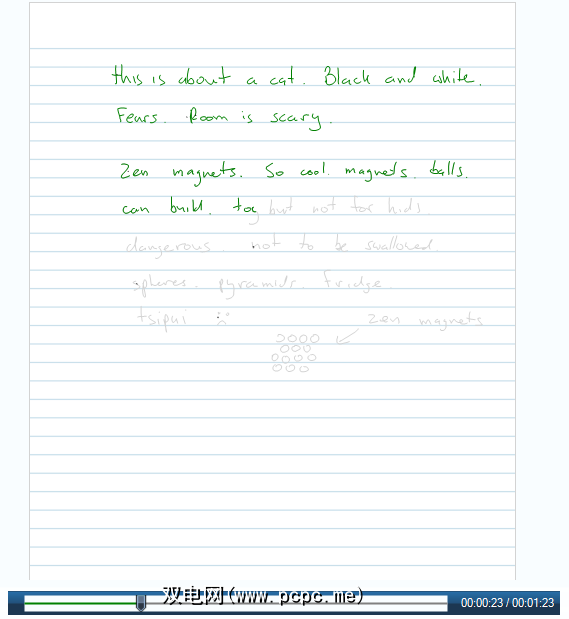 this is about a cat. Black and white.
Fears. Room is scary.
Zen magnets. So cool. magnets. balls.
can build. toy but not for kids
dangerous. not to be swallowed
spheres. pyramids. fridge.
tsipui :(
zen magnets
双电网(www.pcpc.me)
00:00:23 / 00:01:23